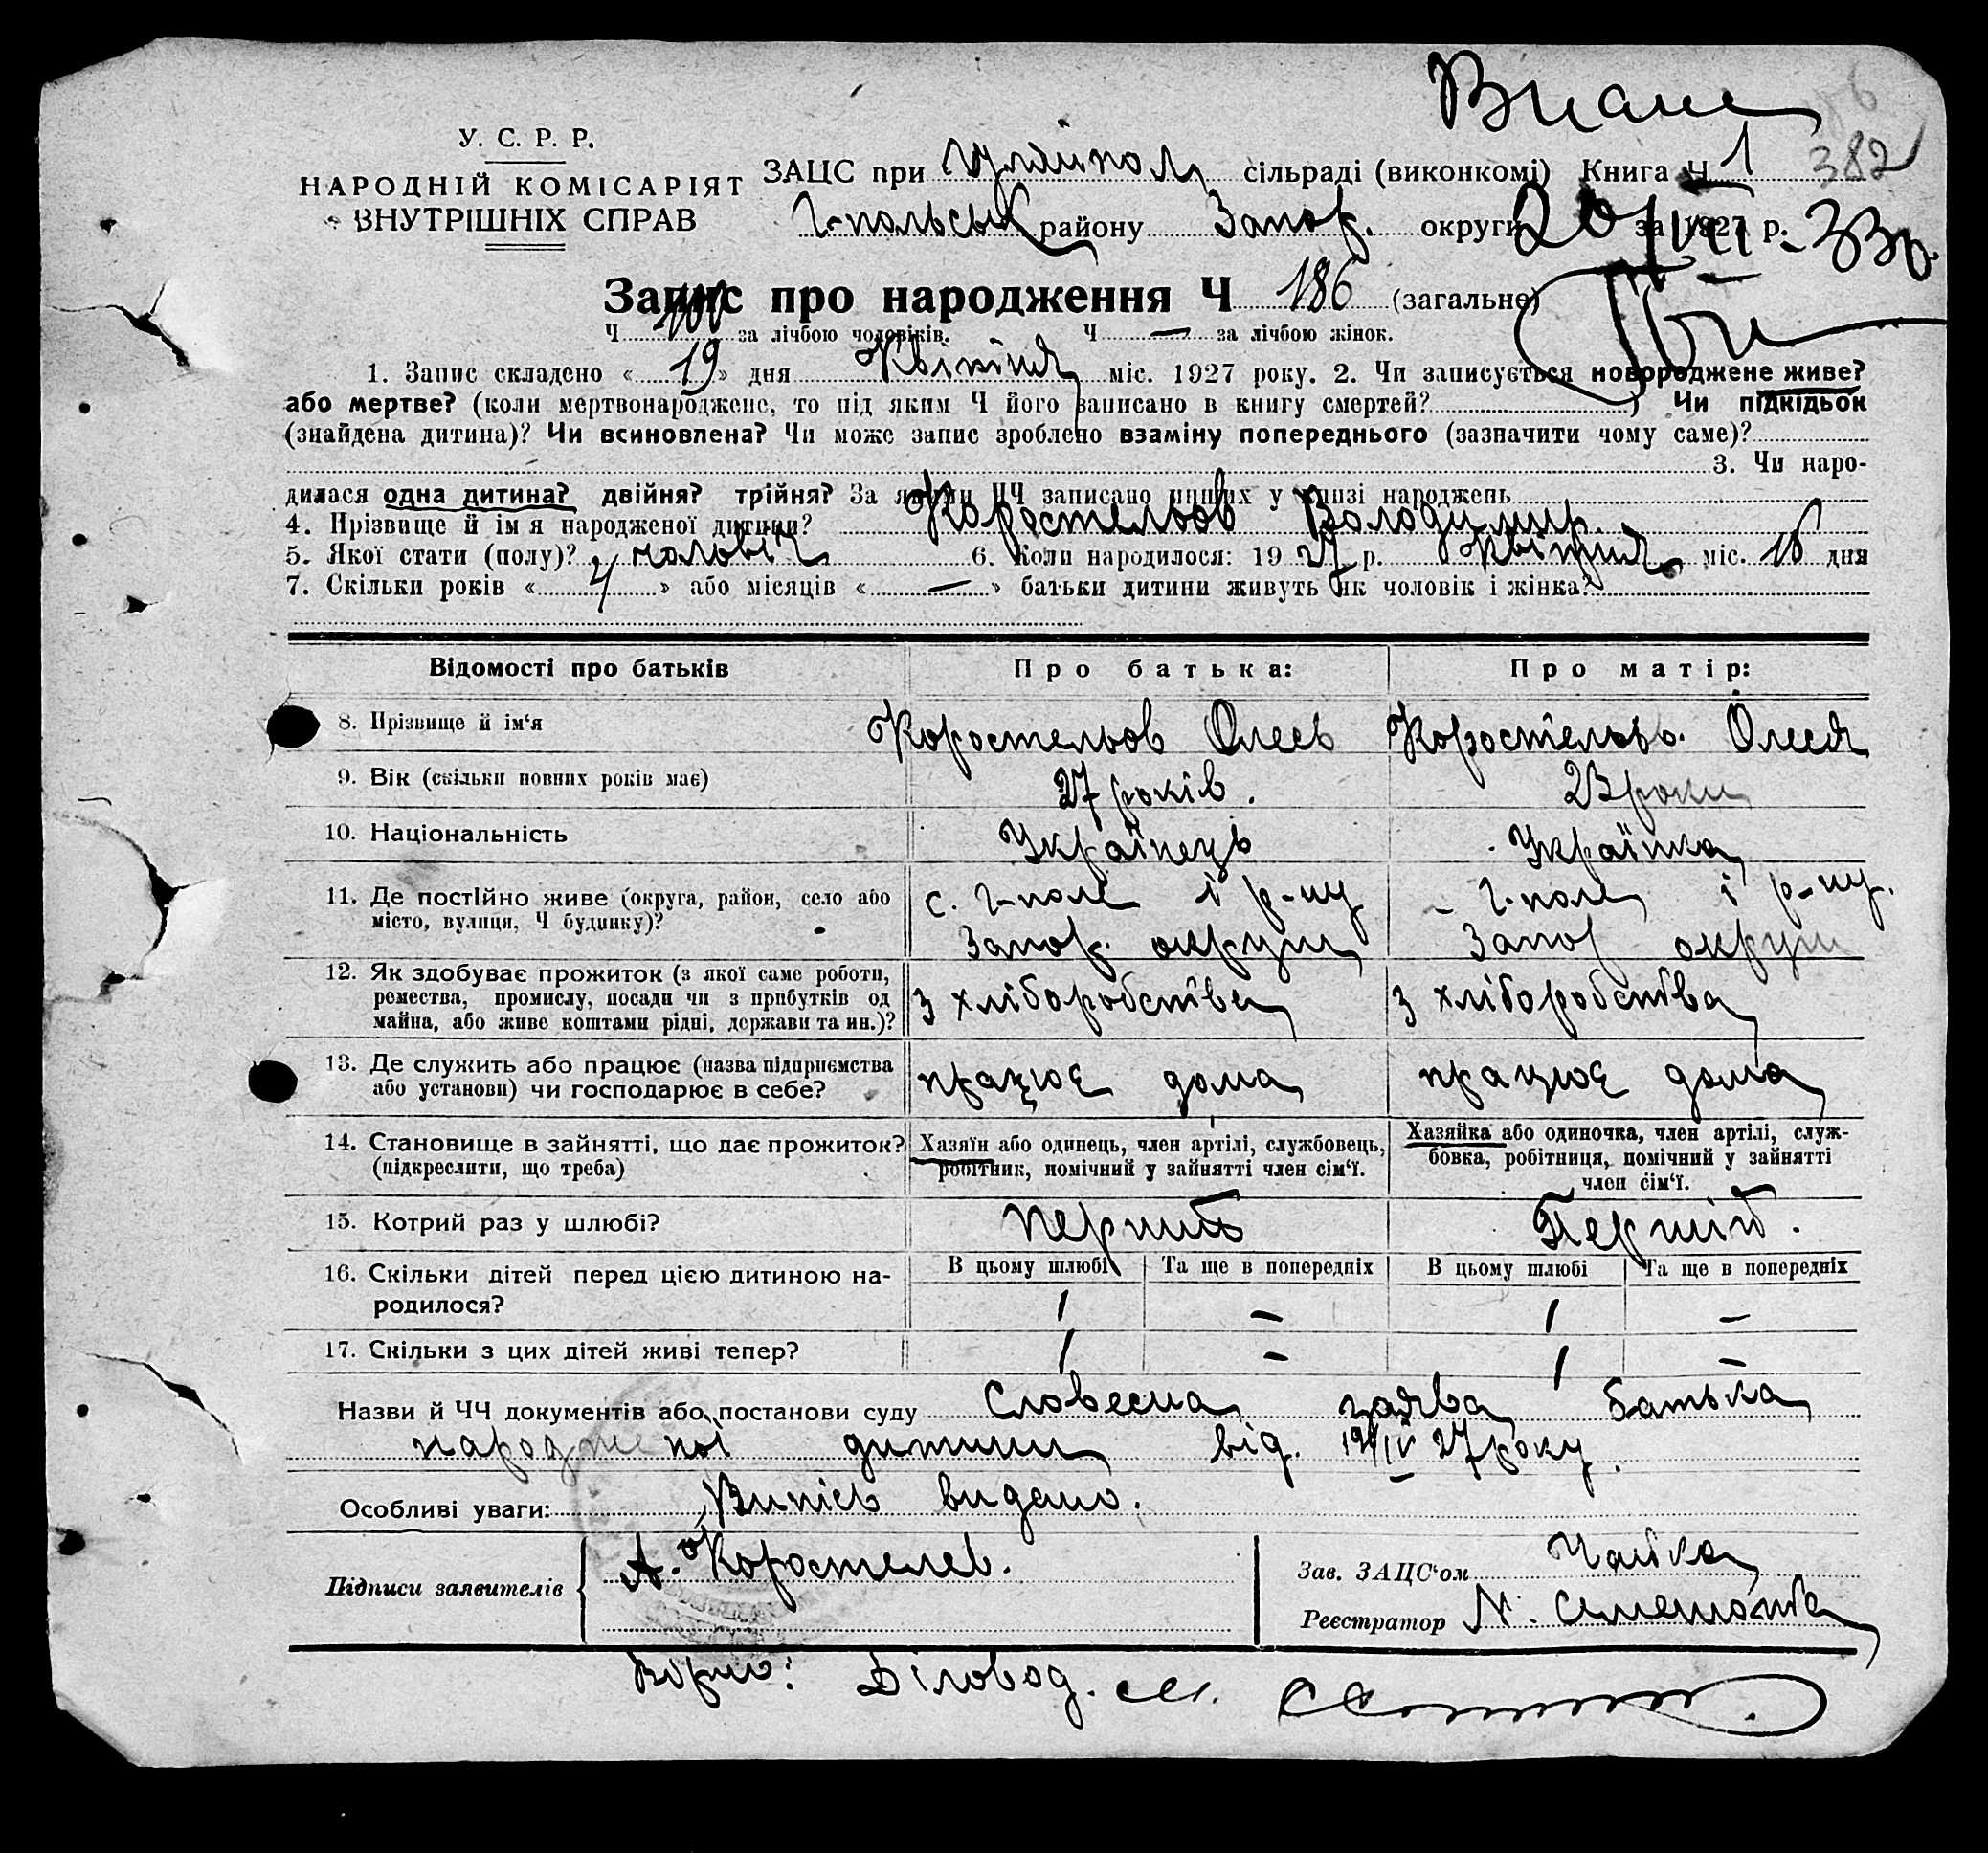 У. С. Р. Р.
НАРОДНІЙ КОМІСАРІЯТ
ВНУТРІШНІХ СПРАВ
382
ЗАЦС при Гуляйполь сільраді (виконкомі) Книга Ч 1
Г-польськ району Запор. округи за 1927 р.
20/VII - 33р.
Запис про народження Ч 186 (загальне)
Ч 100 за лічбою чоловіків. Ч — за лічбою жінок.
1. Запис складено «19» дня Квітня міс. 1927 року. 2. Чи записується новороджене живе?
або мертве? (коли мертвонароджене, то під яким Ч його записано в книгу смертей? ) Чи підкідьок
(знайдена дитина)? Чи всиновлена? Чи може запис зроблено взаміну попереднього (зазначити чому саме)?
3. Чи наро-
дилася одна дитина? двійня? трійня? За якими ЧЧ записано инших у книзі народжень
4. Прізвище й ім я народженої дитини? Коростельов Володимир.
5. Якої стати (полу)? чоловіч 6. Коли народилося: 19 27 р. Квітня міс. 16 дня
7. Скільки років « 4 » або місяців « — » батьки дитини живуть як чоловік і жінка?
Відомості про батьків Про батька: Про матір:
8. Прізвище й ім‘я Коростельов Олесь Коростельова Олеся
9. Вік (скільки повних років має) 27 років. 23 роки
10. Національність Українець Українка
11. Де постійно живе (округа, район, село або с. Г-поле і р-ну Г-поле і р-ну.
місто, вулиця, Ч будинку)? Запор. округи Запор округи
12. Як здобуває прожиток (з якої саме роботи,
ремества, промислу, посади чи з прибутків од з хліборобства з хліборобства
майна, або живе коштами рідні, держави та ин.)?
13. Де служить або працює (назва підприємства працює дома працює дома
або установи) чи господарює в себе?
14. Становище в зайнятті, що дає прожиток? Хазяїн або одинець, член артілі, службовець, Хазяйка або одиночка, член артілі, служ-
(підкреслити, що треба) робітник, помічний у зайнятті член сім‘ї. бовка, робітниця, помічний у зайнятті
член сім‘ї.
15. Котрий раз у шлюбі? Перший Перший.
16. Скільки дітей перед цією дитиною на- В цьому шлюбі Та ще в попередніх В цьому шлюбі Та ще в попередніх
родилося? 1 — 1 —
17. Скільки з цих дітей живі тепер? 1 — 1 —
Назви й ЧЧ документів або постанови суду Словесна заява батька
народженої дитини від. 19/IV 27 року.
Особливі уваги: Випісь видано.
Підписи заявителів А. Коростелев. Зав. ЗАЦС‘ом Чайка
Реєстратор
Вірно: Діловод.